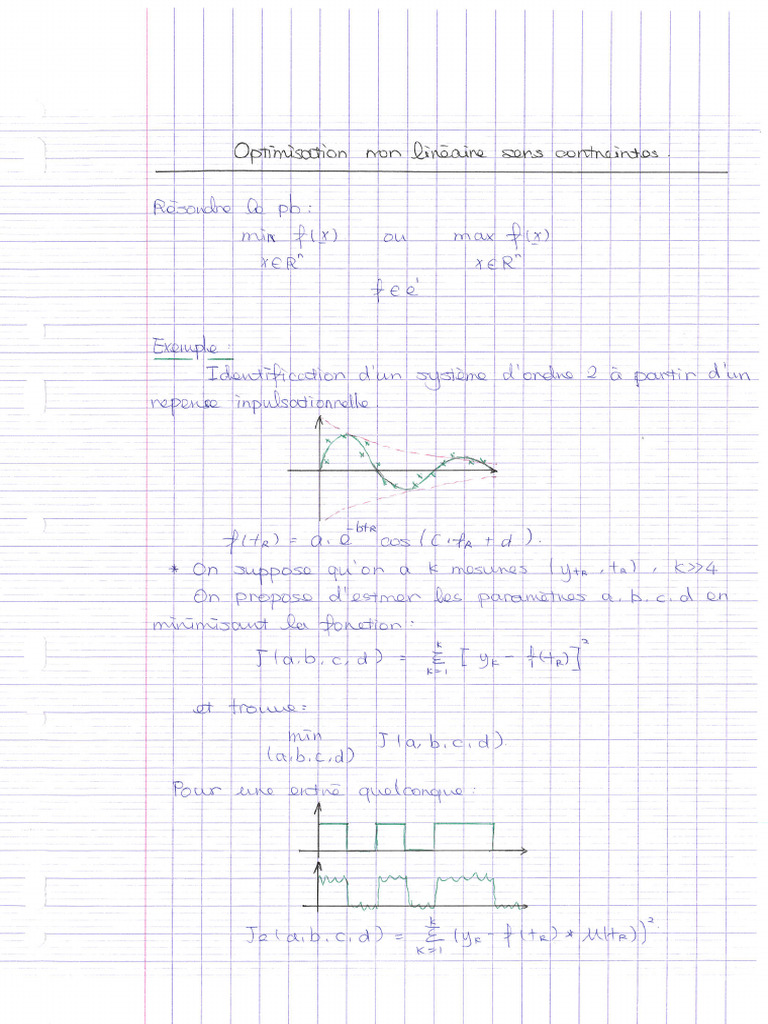 Optimisation non linéaire sans contraintes.
Résoudre le pb :
min f(x) ou max f(x)
x∈Rⁿ x∈Rⁿ
f ∈ C¹
Exemple :
Identification d'un système d'ordre 2 à partir d'un
reponse inpulsationnelle.
f(tk) = a. e^-btk cos(c.tk + d).
* On suppose qu'on a k mesures (ytk, tk), k>>4
On propose d'estmer les paramètres a.b.c.d en
minimisant la fonction :
J(a,b,c,d) = Σ_{k=1}^{k} [yk - f(tk)]²
et trouve :
min J(a,b,c,d).
(a,b,c,d)
Pour une entré quelconque :
J2(a,b,c,d) = Σ_{k=1}^{k} (yk - f(tk) * μ(tk))².